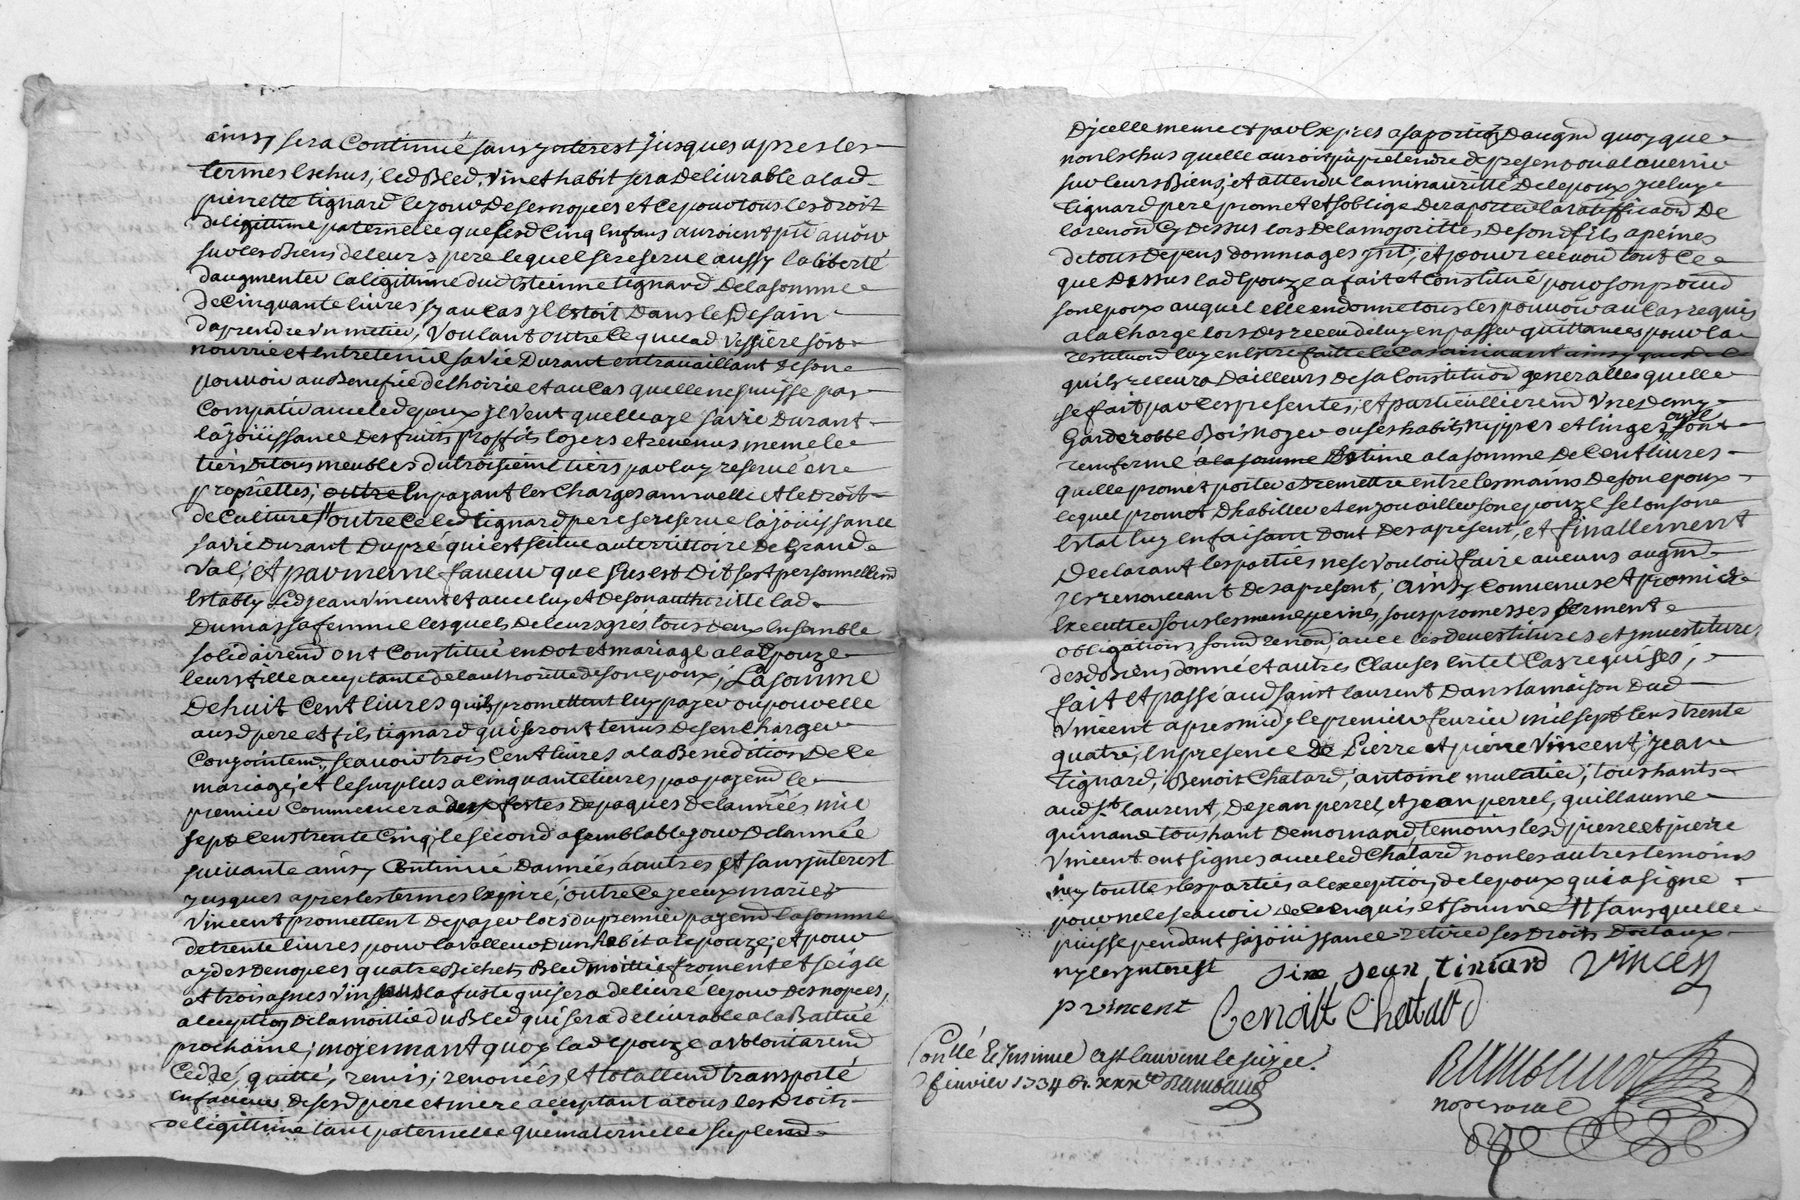 ainsy sera Continué sans ynterest jusques apres les
termes Eschus, led Bled, vin et habit sera deliurable a lad
pierrette tignard le jour de ses nopces et ce pour tous les droit
de legittime paternelle que sesd Cinq Enfans auroient pû avoir
sur les Biens de leurs pere lequel se reserue aussy la liberté
daugmenter la legittime dud Estienne tignard de la somme
de Cinquante liures sy au cas jl Estoit dans le desain
daprendre un metier, voulant outre ce que lad Vessiere soit
nourrie et Entretenue sa vie durant en trauaillant de son
pouuoir au Benefice de lhoirie et au cas quelle ne puisse pas
Compatir auec led epoux jl veut quelle aye sa vie durant
la joüissance des fruits proffits loyers et reuenus meme le
tiers de tous meubles du troisieme tiers par luy reserué en
proprietté; outre En payant les Charges annuelle et le droit
de Culture // outre ce led tignard pere se reserue la joüissance
sa vie durant du pré qui est scitue au territtoire de Grand
Val; et par meme faueur que sus est dit sest personnellemd
Estably Led jean Vincent et auec luy et de son authoritté lad
Dumas sa femme lesquels de leurs grés tous deux Ensemble
solidairemd ont Constitué en dot et mariage a la Epouze
leurs fille acceptante de lauthoritté de son Epoux; La somme
De huit Cent liures quils promettent luy payer ou pour elle
ausd pere et fils tignard qui seront tenus de sen Charger
Conjointemd, scauoir trois Cent liures a la Benedition de Ce
mariage, et le surplus a cinquante liures par payemd le
premier Commencera aux festes de paques de lannéés mil
sept Cens trente Cinq, le second a semblable jour de lannée
suiuante ainsy Continué dannéés a autres et sans jnterest
jusques apres les termes Expiré; outre Ce yceux mariés
Vincent promettent de payer lors du premier payemd la somme
de trente liures pour la valleur dun habit a lepouze; et pour
aydes de nopces quatre Bichets Bled moittié froment et seigle
et trois asnes vin sans la fuste qui sera deliuré le jour des nopces,
a lception de la moittié du Bled qui sera deliurable a la Battué
prochaine; moyennant quoy lad Epouze a volontairemd
Ceddé, quitté, remis, renoncés et totallemd transporté
en faueur de sesd pere et mere acceptant a tous les droits
de legittime tant paternelle que maternelle suplemd
Dycelle meme et par Expres a sa portion daugmd quoy que
non Eschus quelle auroit pû pretendre de present ou a lauenir
sur leurs Biens; et attendu la minauritté de lepoux yceluy
tignard pere promet et soblige de raporter la rattiffication de
la renond Cy dessus lors de la majorittés de son d fils a peines
de tous depens dommages jntts; et pour receuoir tout ce
que dessus lad Epouze a fait et Constitué pour son procud
son epoux auquel elle en donne tous les pouuoir au Cas requis
a la Charge lors des receu de luy en passer quittances pour la
restitution luy en Estre faitte le Cas arriuant ainsy que de
quils receura dailleurs de sa Constitution generalle quelle
se fait par ces presentes; et particullieremd vne demy
Garderobbe Bois noyer ou ses habits nippes et linges sont
renfermé a la somme Estimé a la somme de Cent liures
quelle promet porter et remettre entre les mains de son epoux
lequel promet dhabiller et enjouailler son epouze selon son
Estat luy en faisant dont des a present, et finallement
Declarant les parties ne se vouloir faire aucuns augmd
y renoncant des a present; ainsy Conuenus et promis
Executer sous les meme peines, sous promesses serment
obligations, soumd renond, auec les deuestitures et jnuestitures
desd Biens donné et autres Clauses En tel Cas requises;
fait et passé aud saint laurent Dans la maison dud
Vincent apres midy le premier feurier mil sept Cens trente
quatre; En presence de Pierre et pierre Vincent, jean
tignard, Benoit Chatard, antoine mulatier, tous hants
aud st laurent, De jean perrel, et jean perrel, guillaume
guinand tous hant de mornand, temoins lesd pierre et pierre
Vincent ont signés auec led Chatard non les autres temoins
ny touttes les parties a lexception de lepoux qui a signé
pour ne le scauoir de ce Enquis et sommé // sans quelle
puisse pendant sa joüissance retirer ses droits dotaux
ny les jnterest jean tiniard Vincen
p vincent Benoitt Chatard
Conllé Et Insinué a st laurent le seize
feurier 1734
nore royal